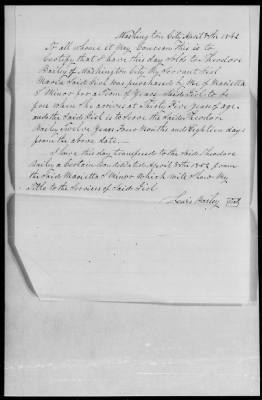 Washington City April 8th 1862
To all whome it May Concern This is to
Certify that I have this day Sold to Theodore
Barley of Washington City My Servant Girl
Maria Said Girl was purchased by Me of Marietta
S Minor for a time of Years Said Girl to be
free when She arrives at Thirty Five years of age
and the Said Girl is to Serve the Said Theodore
Barley Twelve Years Four Months and Eighteen days
from the above date
I have this day transfered to the Said Theodore
Barley a Certain dated April 8th 1862 from
the Said Marietta S Minor Which will Show My
Title to the Services of Said Girl
Lewis Barley